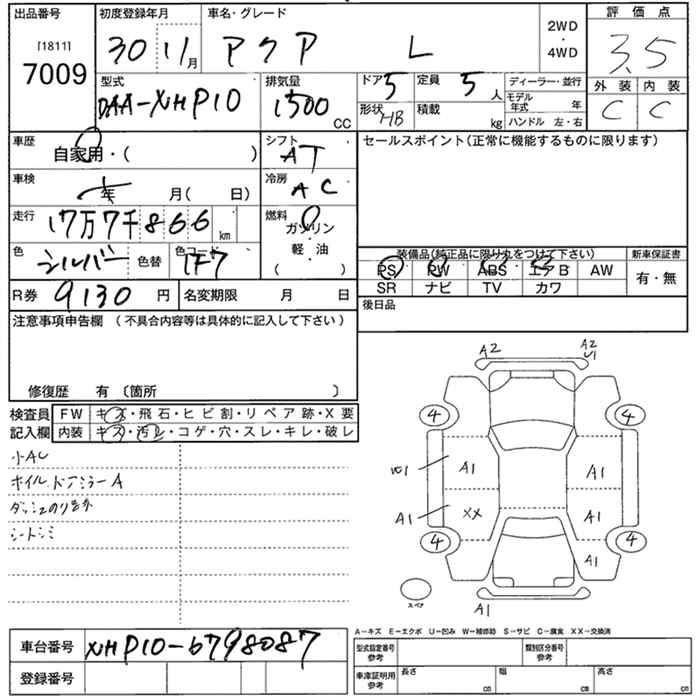 出品番号 初度登録年月 車名・グレード 2WD・4WD 評価点
[1811] 7009 30 11月 アクア L 3.5
型式 排気量 ドア 5 定員 5人 ディーラー・並行 外装 内装
DAA-NHP10 1500 CC 形状 HB 積載 kg モデル年式 年 C C
ハンドル 左・右
車歴 自家用・( ) シフト AT セールスポイント(正常に機能するものに限ります)
車検 年 月( 日) 冷房 AC
走行 17万7千866 km 燃料 ガソリン
色 シルバー 色替 色コード 1F7 軽・油 ( )
装備品(純正品に限り丸をつけて下さい) 新車保証書
PS PW ABS エアB AW 有・無
SR ナビ TV カワ
R券 9130円 名変期限 月 日 後日品
注意事項申告欄 (不具合内容等は具体的に記入して下さい)
修復歴 有 〔箇所 〕
検査員 FW キズ・飛石・ヒビ割・リペア跡・X要
記入欄 内装 キズ・汚レ・コゲ・穴・スレ・キレ・破レ
小AU
ホイル.ドアミラーA
シートシミ
A2 A2 U1
4 4
A1 A1
A1 XX A1
4 4
A1
スペア A1
A−キズ E−エクボ U−凹み W−補修跡 S−サビ C−腐食 XX−交換済
車台番号 NHP10-6798087 型式指定番号 参考 類別区分番号 参考
登録番号 車庫証明用 参考 長さ cm 幅 cm 高さ cm